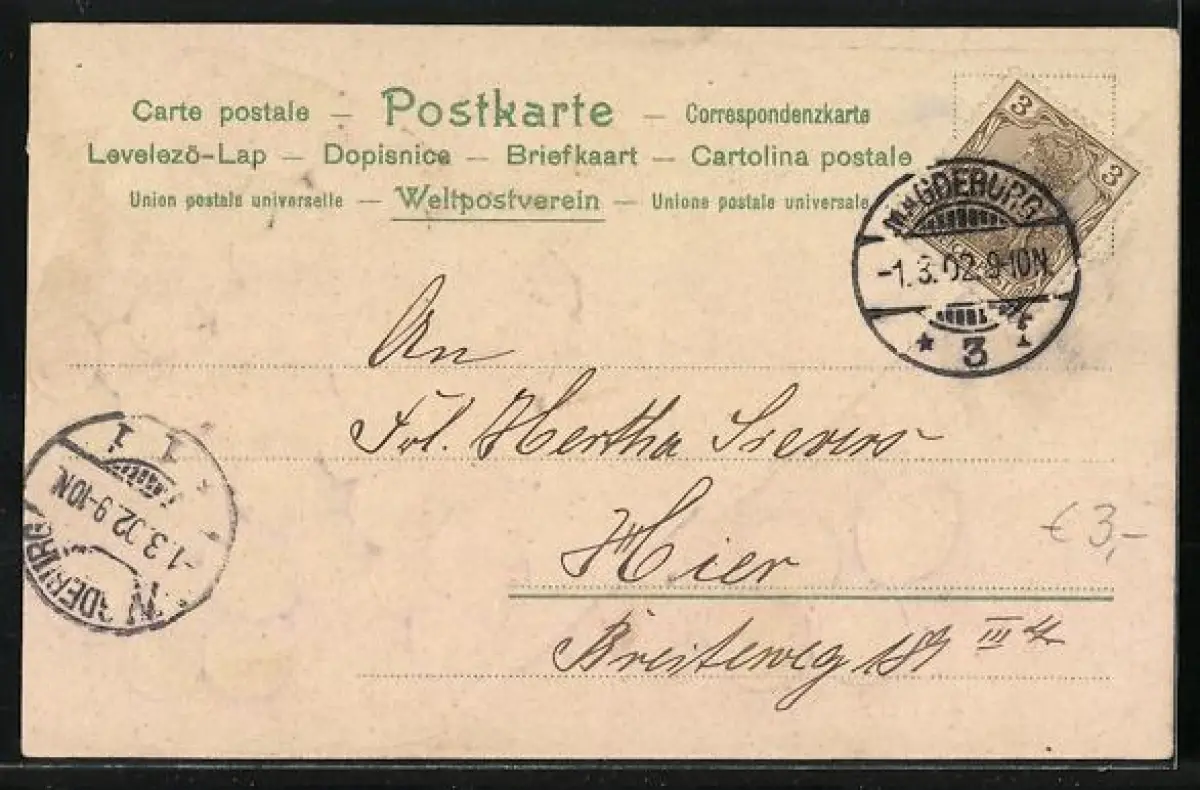 Carte postale — Postkarte — Correspondenzkarte
Levelezö-Lap — Dopisnice — Briefkaart — Cartolina postale
Union postale universelle — Weltpostverein — Unione postale universale
3 3
MAGDEBURG
-1.3.02.9-10N
* 3 *
An
Frl. Hertha Sievers
Hier
Breiteweg III
€ 3,-
1
-1.3.02.9-10N